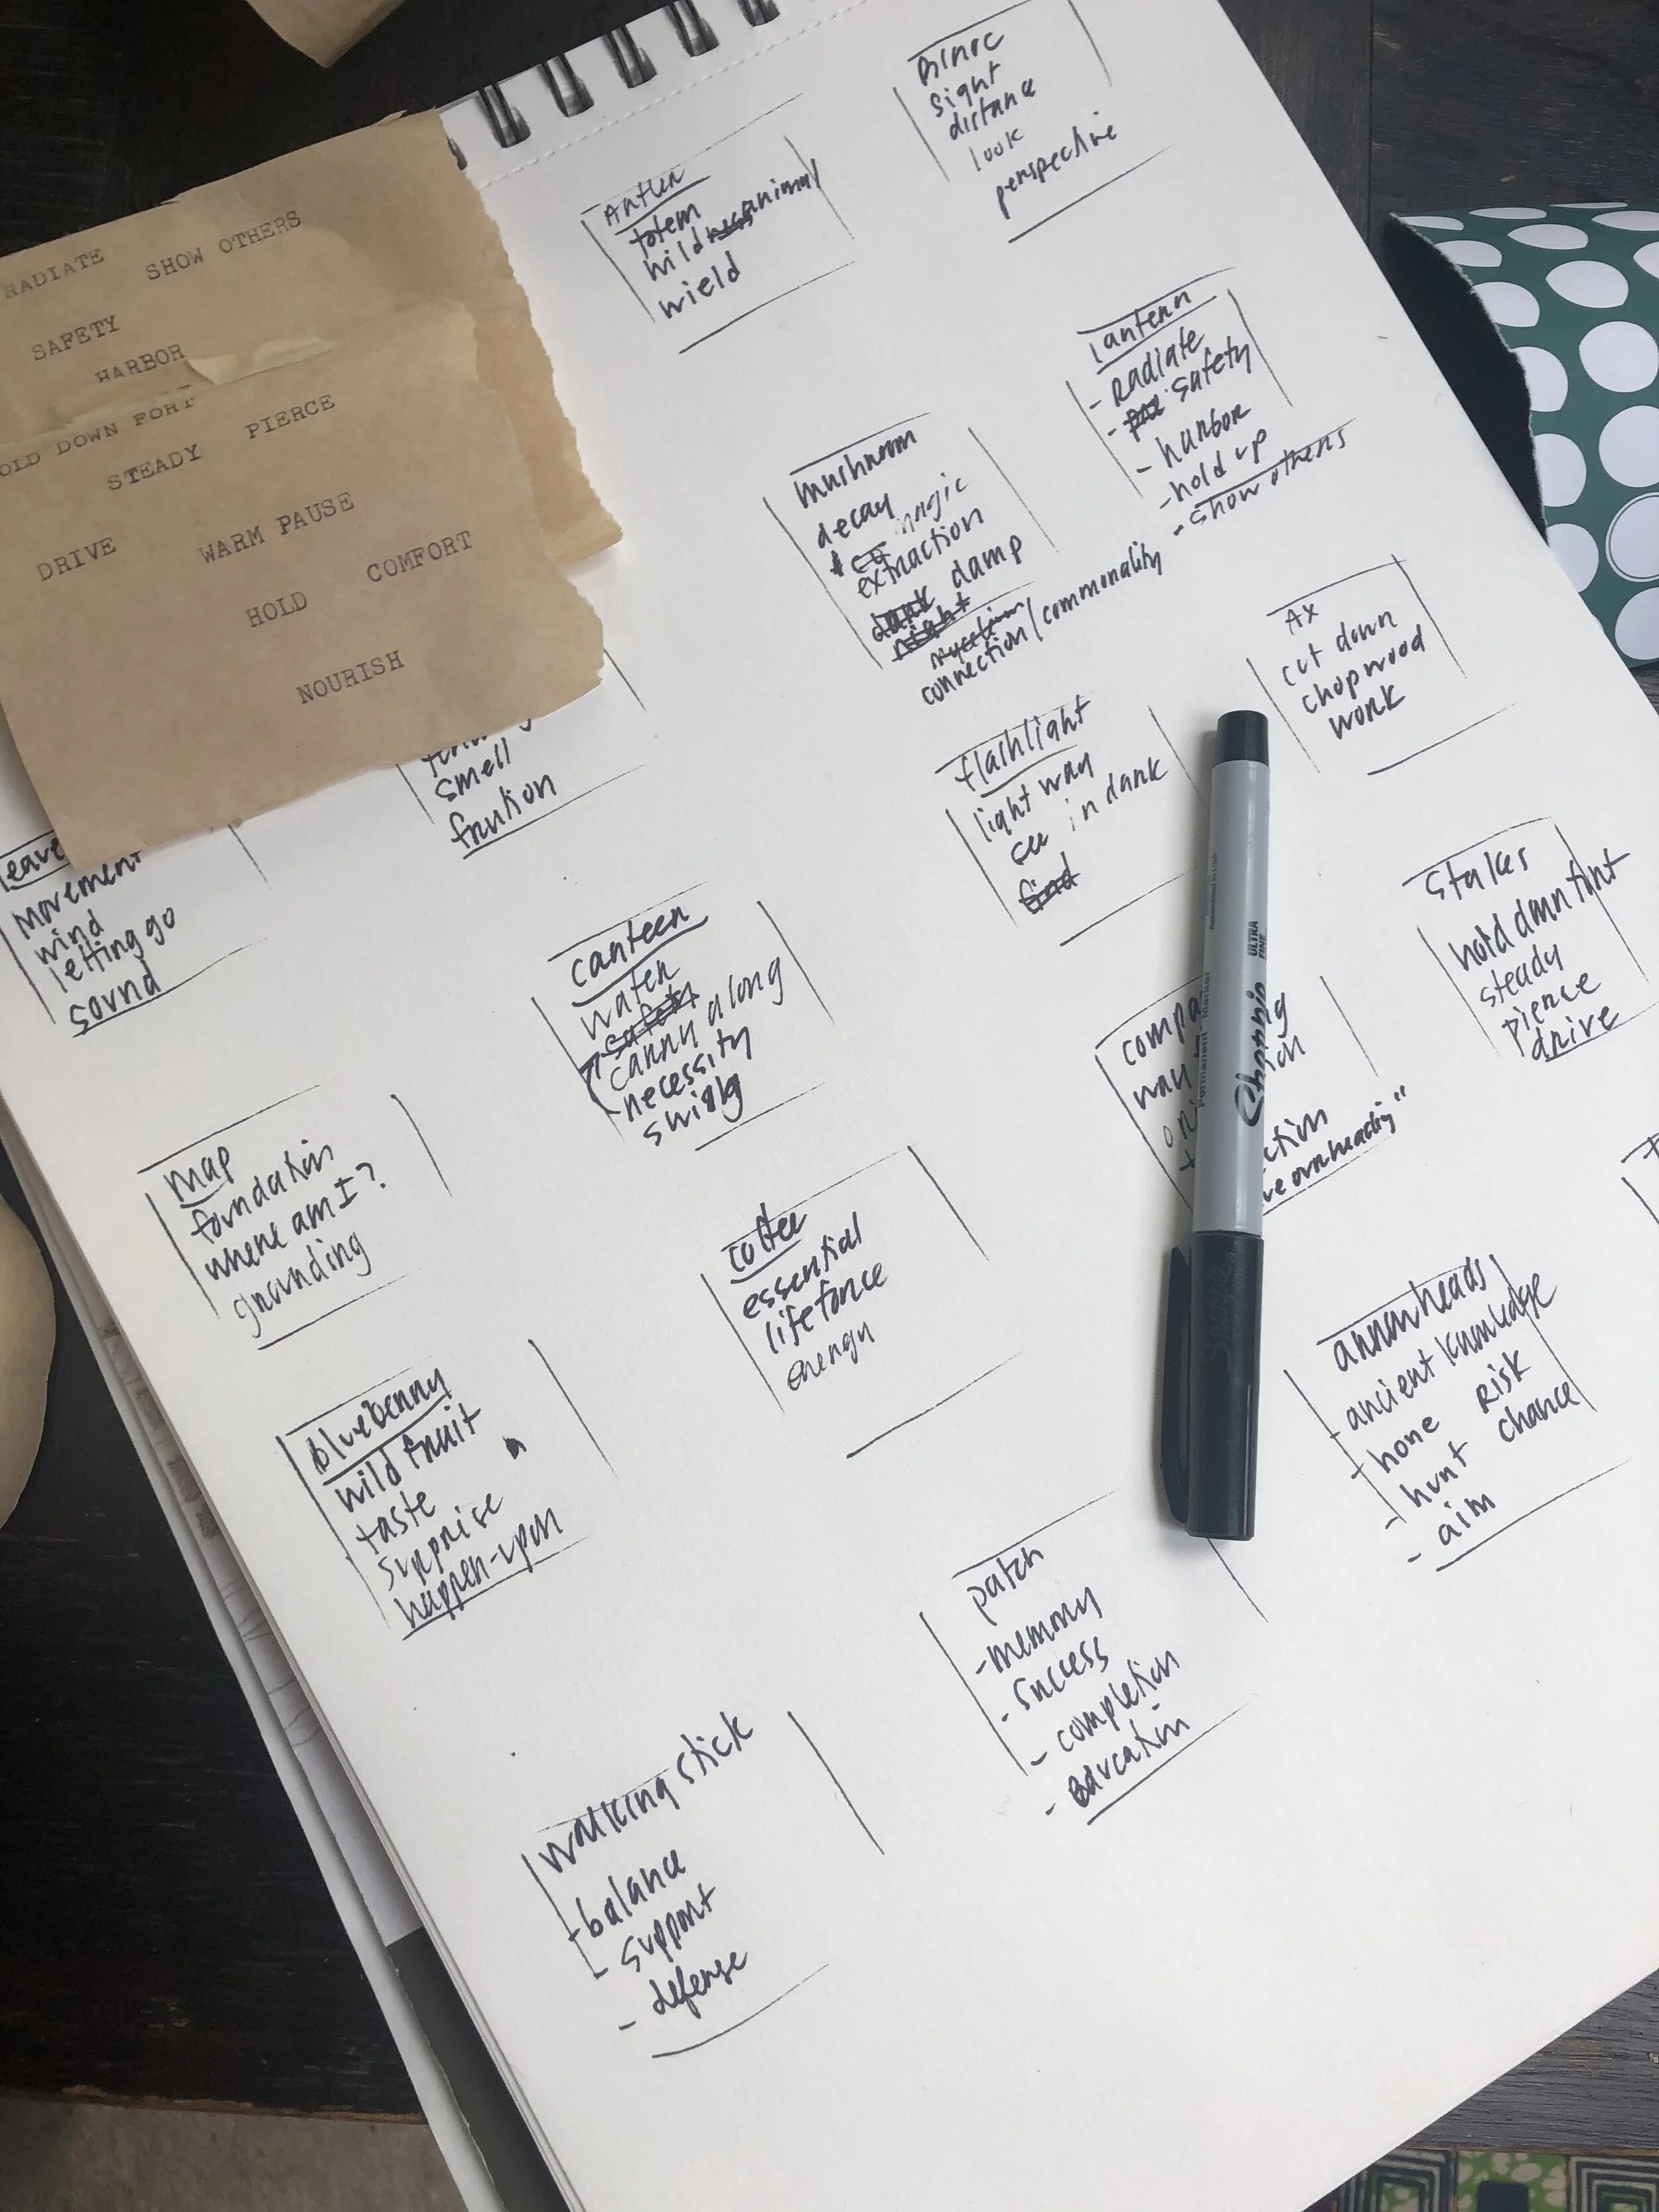 RADIATE SHOW OTHERS
SAFETY
HARBOR
OLD DOWN FORT
STEADY PIERCE
DRIVE WARM PAUSE
HOLD COMFORT
NOURISH
Binoc
sight
distance
look
perspective
Antler
totem
wildness animal
wield
lantern
- Radiate
- safety
- harbor
- hold up
- show others
mushroom
decay
magic
extraction
dark damp
night
mycelium
connection/commonality
Ax
cut down
chop wood
work
flashlight
light way
see in dark
find
smell
fruition
leave
movement
wind
letting go
sound
stakes
hold down fort
steady
pierce
drive
canteen
water
safety
carry along
necessity
swig
compa
way
ction
ve overheadig"
Sharpie
Permanent Marker
ULTRA FINE
Sharpie
map
foundation
where am I?
grounding
coffee
essential
life force
energy
arrowheads
- ancient knowledge
- hone Risk
- hunt chance
- aim
blueberry
wild fruit
taste
surprise
happen-upon
patch
- memory
- success
- completion
- education
walking stick
- balance
- support
- defense